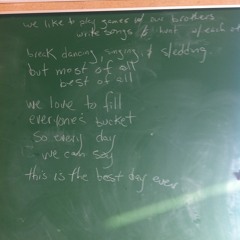 we like to play games w/ our brothers
write songs & each ot
break dancing, singing, & sledding
but most of all
best of all
we love to fill
everyone's bucket
so every day
we can say
this is the best day ever